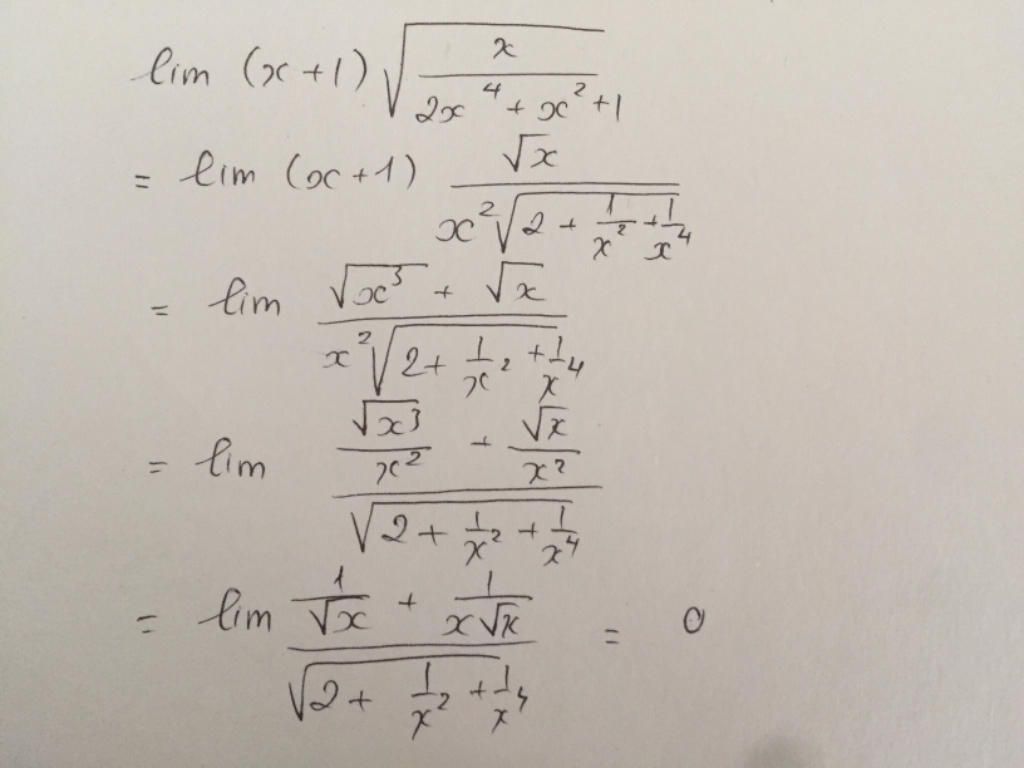 lim (x+1) √(x/(2x⁴+x²+1))
= lim (x+1) √x/(x²√(2+1/x²+1/x⁴))
= lim (√x³+√x)/(x²√(2+1/x²+1/x⁴))
= lim (√x³/x²+√x/x²)/√(2+1/x²+1/x⁴)
= lim (1/√x+1/(x√x))/√(2+1/x²+1/x⁴) = 0